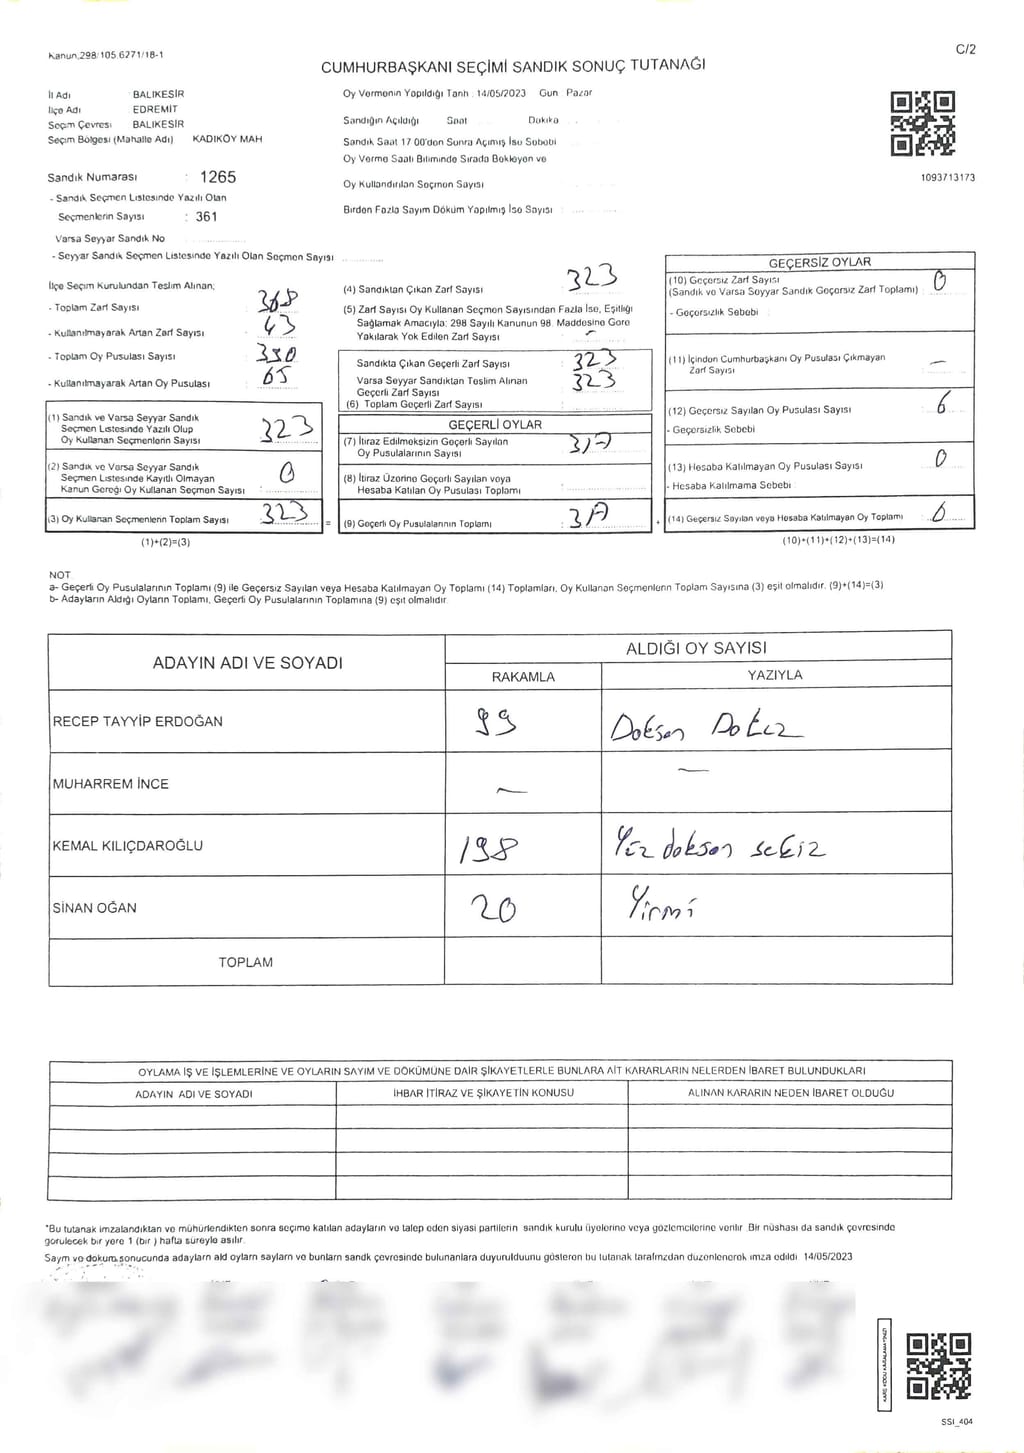 Kanun.298/105.6271/18-1
C/2
CUMHURBAŞKANI SEÇİMİ SANDIK SONUÇ TUTANAĞI
İl Adı : BALIKESİR
İlçe Adı EDREMİT
Seçim Çevresi BALIKESİR
Seçim Bölgesi (Mahalle Adı) KADIKÖY MAH
Sandık Numarası : 1265
- Sandık Seçmen Listesinde Yazılı Olan
Seçmenlerin Sayısı : 361
Varsa Seyyar Sandık No
- Seyyar Sandık Seçmen Listesinde Yazılı Olan Seçmen Sayısı
Oy Vermenin Yapıldığı Tarih : 14/05/2023 Gün : Pazar
Sandığın Açıldığı Saat Dakika
Sandık Saat 17.00'den Sonra Açılmış İse Sebebi
Oy Verme Saati Bitiminde Sırada Bekleyen ve
Oy Kullandırılan Seçmen Sayısı
Birden Fazla Sayım Döküm Yapılmış İse Sayısı :
1093713173
İlçe Seçim Kurulundan Teslim Alınan;
- Toplam Zarf Sayısı : 368
- Kullanılmayarak Artan Zarf Sayısı : 43
- Toplam Oy Pusulası Sayısı : 380
- Kullanılmayarak Artan Oy Pusulası : 65
(1) Sandık ve Varsa Seyyar Sandık
Seçmen Listesinde Yazılı Olup
Oy Kullanan Seçmenlerin Sayısı : 323
(2) Sandık ve Varsa Seyyar Sandık
Seçmen Listesinde Kayıtlı Olmayan
Kanun Gereği Oy Kullanan Seçmen Sayısı : 0
(3) Oy Kullanan Seçmenlerin Toplam Sayısı : 323
(1)+(2)=(3)
(4) Sandıktan Çıkan Zarf Sayısı : 323
(5) Zarf Sayısı Oy Kullanan Seçmen Sayısından Fazla İse, Eşitliği
Sağlamak Amacıyla; 298 Sayılı Kanunun 98. Maddesine Göre
Yakılarak Yok Edilen Zarf Sayısı : -
Sandıkta Çıkan Geçerli Zarf Sayısı : 323
Varsa Seyyar Sandıktan Teslim Alınan : 323
Geçerli Zarf Sayısı
(6) Toplam Geçerli Zarf Sayısı :
GEÇERLİ OYLAR
(7) İtiraz Edilmeksizin Geçerli Sayılan
Oy Pusulalarının Sayısı : 317
(8) İtiraz Üzerine Geçerli Sayılan veya
Hesaba Katılan Oy Pusulası Toplamı :
= (9) Geçerli Oy Pusulalarının Toplamı : 317
GEÇERSİZ OYLAR
(10) Geçersiz Zarf Sayısı
(Sandık ve Varsa Seyyar Sandık Geçersiz Zarf Toplamı) : 0
- Geçersizlik Sebebi :
(11) İçinden Cumhurbaşkanı Oy Pusulası Çıkmayan
Zarf Sayısı : —
(12) Geçersiz Sayılan Oy Pusulası Sayısı : 6
- Geçersizlik Sebebi
(13) Hesaba Katılmayan Oy Pusulası Sayısı : 0
- Hesaba Katılmama Sebebi :
+ (14) Geçersiz Sayılan veya Hesaba Katılmayan Oy Toplamı : 6
(10)+(11)+(12)+(13)=(14)
NOT
a- Geçerli Oy Pusulalarının Toplamı (9) ile Geçersiz Sayılan veya Hesaba Katılmayan Oy Toplamı (14) Toplamları, Oy Kullanan Seçmenlerin Toplam Sayısına (3) eşit olmalıdır. (9)+(14)=(3)
b- Adayların Aldığı Oyların Toplamı, Geçerli Oy Pusulalarının Toplamına (9) eşit olmalıdır.
ADAYIN ADI VE SOYADI
ALDIĞI OY SAYISI
RAKAMLA YAZIYLA
RECEP TAYYİP ERDOĞAN 99 Doksan Dokuz
MUHARREM İNCE — —
KEMAL KILIÇDAROĞLU 198 Yüz doksan sekiz
SİNAN OĞAN 20 Yirmi
TOPLAM
OYLAMA İŞ VE İŞLEMLERİNE VE OYLARIN SAYIM VE DÖKÜMÜNE DAİR ŞİKAYETLERLE BUNLARA AİT KARARLARIN NELERDEN İBARET BULUNDUKLARI
ADAYIN ADI VE SOYADI İHBAR İTİRAZ VE ŞİKAYETİN KONUSU ALINAN KARARIN NEDEN İBARET OLDUĞU
*Bu tutanak imzalandıktan ve mühürlendikten sonra seçime katılan adayların ve talep eden siyasi partilerin sandık kurulu üyelerine veya gözlemcilerine verilir. Bir nüshası da sandık çevresinde
görülecek bir yere 1 (bir ) hafta süreyle asılır.
Saym ve dokum sonucunda adaylarn ald oylarn saylarn ve bunlarn sandk çevresinde bulunanlara duyurulduunu gösteren bu tutanak tarafmzdan düzenlenerek imza edildi. 14/05/2023
KARE KODU KARALAMAYINIZ!
SSI_404